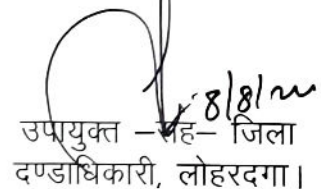 8/8/22
उपायुक्त –सह– जिला
दण्डाधिकारी, लोहरदगा।